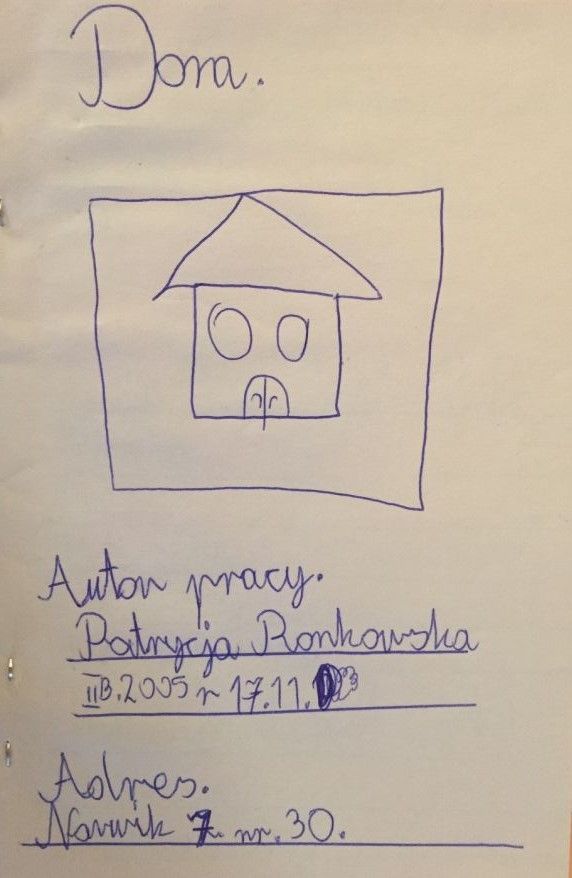 Dora.
Autor pracy.
Patrycja Ronkowska
IIB. 2005 r 17.11.
Adres.
Narwik 7. nr. 30.